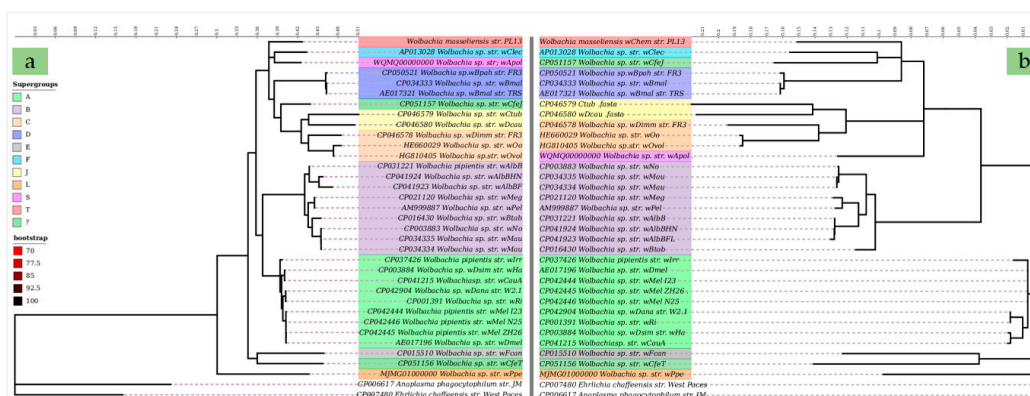 a
Supergroups
A
B
C
D
E
F
J
L
S
T
?
bootstrap
70
77.5
85
92.5
100
Wolbachia masseliensis str. PL13
AP013028 Wolbachia sp. str. wClec
WQMQ00000000 Wolbachia sp. str; wApol
CP050521 Wolbachia sp.wBpah str. FR3
CP034333 Wolbachia sp. str. wBmal
AE017321 Wolbachia sp. str. wBmal TRS
CP051157 Wolbachia sp. str. wCfeJ
CP046579 Wolbachia sp. str. wCtub
CP046580 Wolbachia sp. str. wDcau
CP046578 Wolbachia sp. wDimm str. FR3
HE660029 Wolbachia sp. str. wOo
HG810405 Wolbachia sp.str. wOvol
CP031221 Wolbachia pipientis str. wAlbB
CP041924 Wolbachia sp. str. wAlbBHN
CP041923 Wolbachia sp. str. wAlbBF
CP021120 Wolbachia sp. str. wMeg
AM999887 Wolbachia sp. str. wPel
CP016430 Wolbachia sp. str. wBtab
CP003883 Wolbachia sp. str. wNo
CP034335 Wolbachia sp. str. wMau
CP034334 Wolbachia sp. str. wMau
CP037426 Wolbachia pipientis str. wIrr
CP003884 Wolbachia sp. wDsim str. wHa
CP041215 Wolbachiasp. str. wCauA
CP042904 Wolbachia sp. wDana str. W2.1
CP001391 Wolbachia sp. str. wRi
CP042444 Wolbachia pipientis str. wMel I23
CP042446 Wolbachia pipientis str. wMel N25
CP042445 Wolbachia pipientis str. wMel ZH26
AE017196 Wolbachia sp. str. wDmel
CP015510 Wolbachia sp. str. wFcan
CP051156 Wolbachia sp. str. wCfeT
MJMG01000000 Wolbachia sp. str. wPpe
CP006617 Anaplasma phagocytophilum str. JM
CP007480 Ehrlichia chaffeensis str. West Paces
b
Wolbachia masseliensis wChem str. PL13
AP013028 Wolbachia sp. str. wClec
CP051157 Wolbachia sp. str. wCfeJ
CP050521 Wolbachia sp. wBpah str. FR3
CP034333 Wolbachia sp. str. wBmal
AE017321 Wolbachia sp. wBmal str. TRS
CP046579 Ctub .fasta
CP046580 wDcau .fasta
CP046578 Wolbachia sp. wDimm str. FR3
HE660029 Wolbachia sp. str. wOo
HG810405 Wolbachia sp. str. wOvol
WQMQ00000000 Wolbachia sp. str. wApol
CP003883 Wolbachia sp. str. wNo
CP034335 Wolbachia sp. str. wMau
CP034334 Wolbachia sp. str. wMau
CP021120 Wolbachia sp. str. wMeg
AM999887 Wolbachia sp. str. wPel
CP031221 Wolbachia sp. str. wAlbB
CP041924 Wolbachia sp. str. wAlbBHN
CP041923 Wolbachia sp. str. wAlbBFL
CP016430 Wolbachia sp. str. wBtab
CP037426 Wolbachia pipientis str. wIrr
AE017196 Wolbachia sp. str. wDmel
CP042444 Wolbachia sp. str. wMel I23
CP042445 Wolbachia sp. str. wMel ZH26
CP042446 Wolbachia sp. str. wMel N25
CP042904 Wolbachia sp. wDana str. W2.1
CP001391 Wolbachia sp. str. wRi
CP003884 Wolbachia sp. wDsim str. wHa
CP041215 Wolbachiasp. str. wCauA
CP015510 Wolbachia sp. str. wFcan
CP051156 Wolbachia sp. str. wCfeT
MJMG01000000 Wolbachia sp. str. wPpe
CP007480 Ehrlichia chaffeensis str. West Paces
CP006617 Anaplasma phagocytophilum str. JM